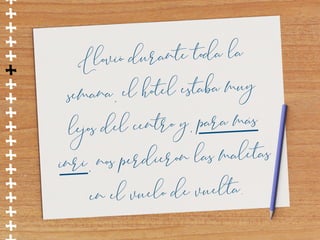 Llovió durante toda la
semana, el hotel estaba muy
lejos del centro y, para más
inri, nos perdieron las maletas
en el vuelo de vuelta.